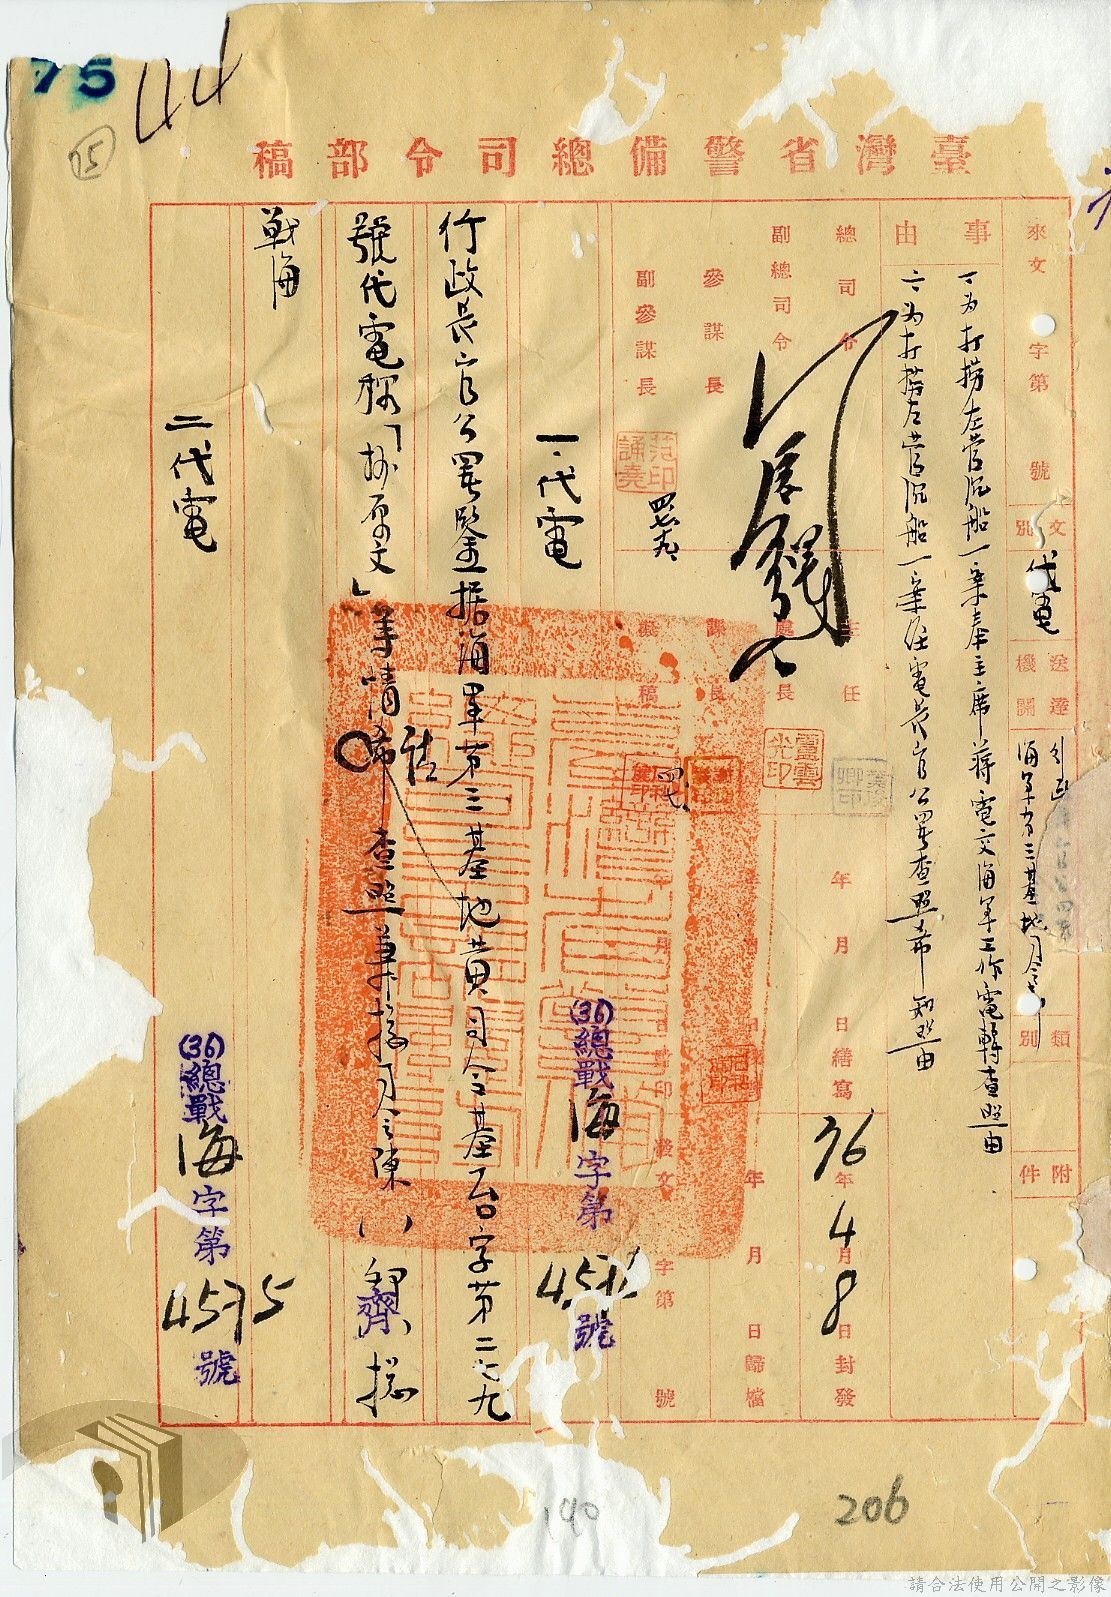 75
44
15
臺灣省警備總司令部稿
來文 字第 號
文別 代電
送達機關
海軍第三基地司令部
類別
附件
事由
一、为打捞左营沉船一案奉主席蒋電交海軍工作電轉查照由
二、为打捞左营沉船一案经電長官公署查照希知照由
總司令
副總司令
參謀長
副參謀長
范誦堯印
主任
處長
課長
擬稿
年 月 日繕寫
36年4月8日封發
年 月 日歸檔
發文 字第 號
一、代電
(36)總戰海字第 號
行政長官公署鑒據海軍第三基地黄司令基台字第二七九
號代電稱「抄原文」等情 希查照兼總司令陳
齊 總
戰海
二代電
(36)總戰海字第4575號
190
206
請合法使用公開之影像